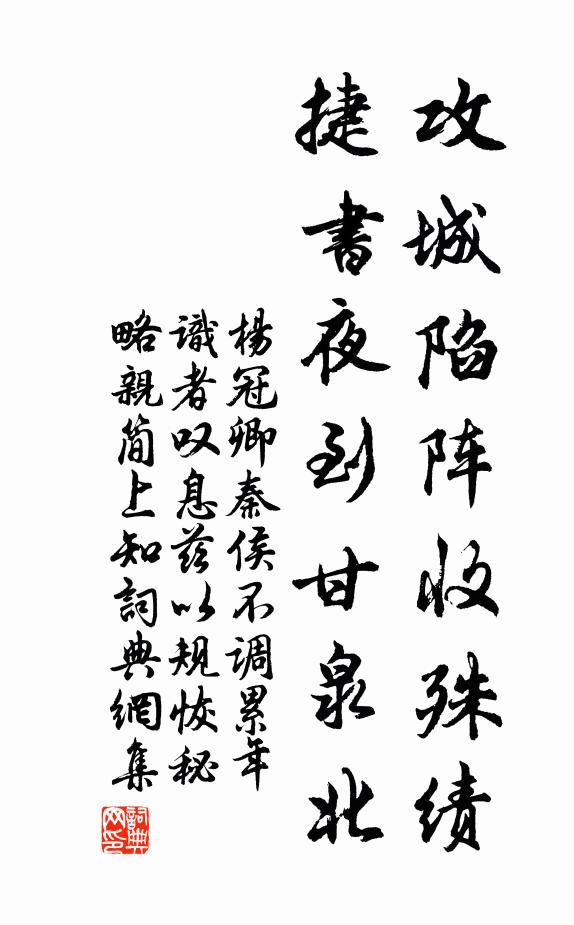 攻城陷阵收殊绩
捷書夜到甘泉北
楊冠卿秦侯不调累年
識者叹息兹以规恢秘
略親简上知詞典網集
詞典网印